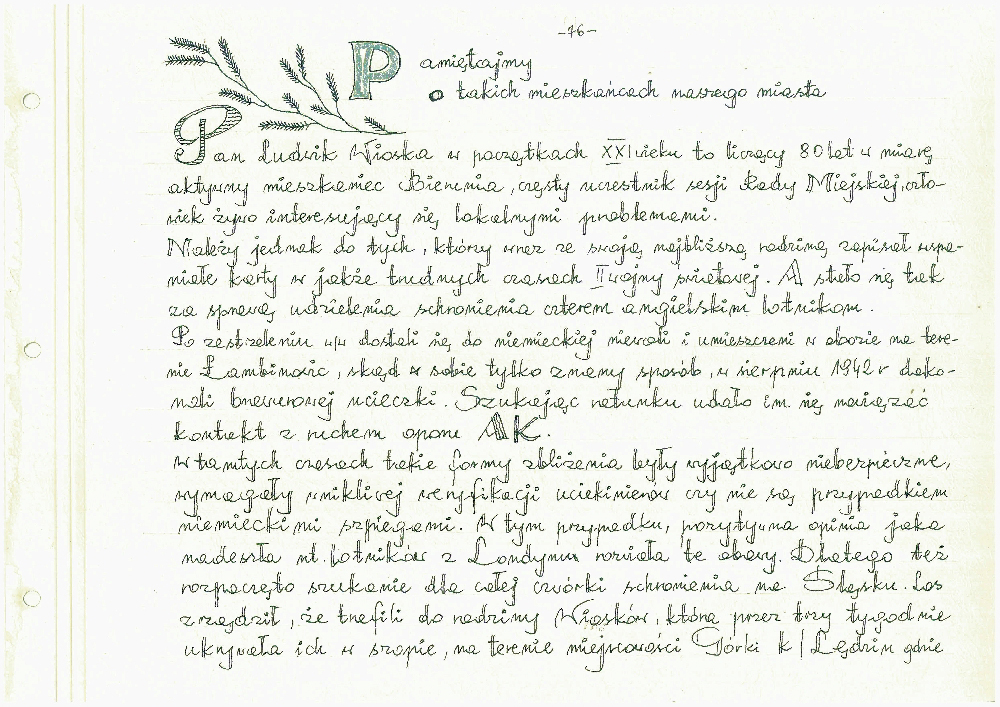 -76-
Pamiętajmy
o takich mieszkańcach naszego miasta
Pan Ludwik Wioska w początkach XXI wieku to liczący 80 lat w miarę
aktywny mieszkaniec Bierunia, częsty uczestnik sesji Rady Miejskiej, czło-
wiek żywo interesujący się lokalnymi problemami.
Należy jednak do tych, którzy wraz ze swoją najbliższą rodziną zapisał wspa-
niałe karty w jakże trudnych czasach II wojny światowej. A stało się tak
za sprawą udzielenia schronienia czterem angielskim lotnikom.
Po zestrzeleniu w/w dostali się do niemieckiej niewoli i umieszczeni w obozie na tere-
nie Łambinowic, skąd w sobie tylko znany sposób, w sierpniu 1942 r doko-
nali brawurowej ucieczki. Szukając ratunku udało im się nawiązać
kontakt z ruchem oporu AK.
W tamtych czasach takie formy zbliżenia były wyjątkowo niebezpieczne,
wymagały wnikliwej weryfikacji uciekinierów czy nie są przypadkiem
niemieckimi szpiegami. W tym przypadku, pozytywna opinia jaka
nadeszła nt. lotników z Londynu rozwiała te obawy. Dlatego też
rozpoczęto szukanie dla całej czwórki schronienia na Śląsku. Los
zrządził, że trafili do rodziny Wiosków, która przez trzy tygodnie
ukrywała ich w szopie, na terenie miejscowości Górki k/Lędzin gdzie